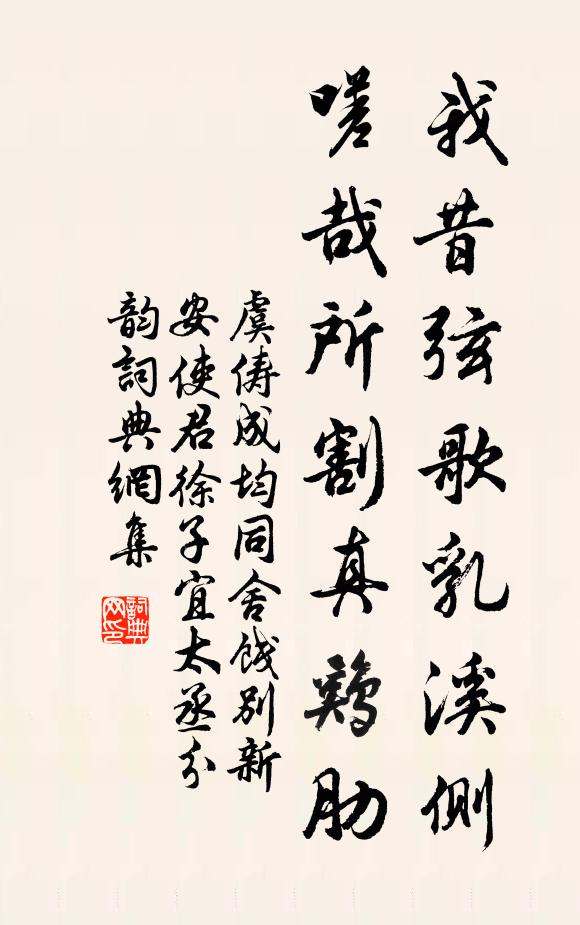 我昔弦歌乳溪側
嗟哉所割真鷄肋
虞俦成均同舍餞別新
安使君徐子宜太丞分
韵詞典網集
詞典网印